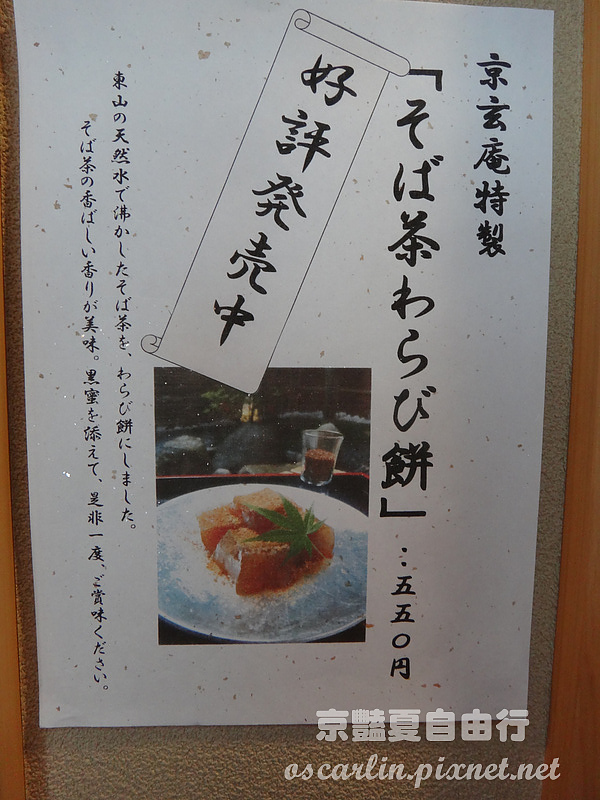 京玄庵特製
「そば茶わらび餅」：五五〇円
好評発売中
東山の天然水で沸かしたそば茶を、わらび餅にしました。
そば茶の香ばしい香りが美味。黒蜜を添えて、是非一度、ご賞味ください。
京豔夏自由行
oscarlin.pixnet.net